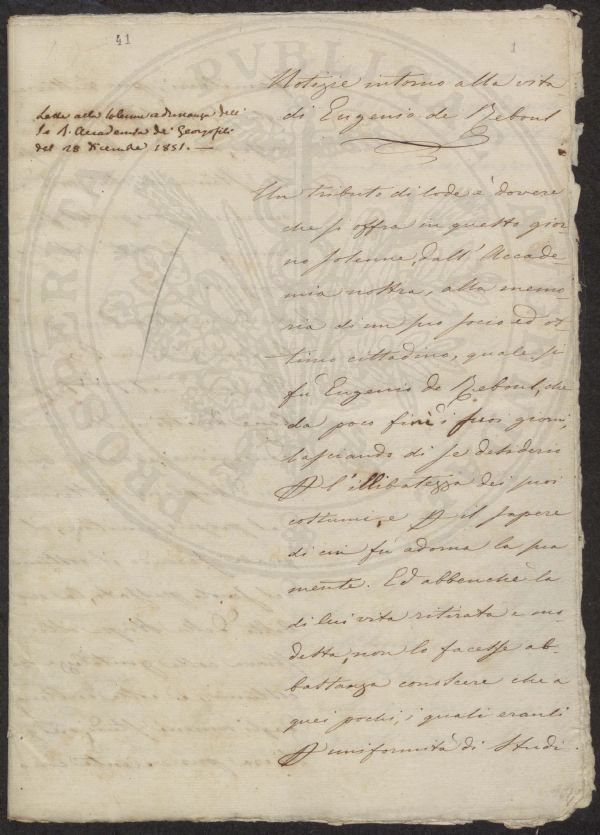 41
1
Notizie intorno alla vita
di Eugenio de Reboul
Letta alla solenne adunanza dell'
I. e R. Accademia de' Georgofili
del 28 dicembre 1851. —
Un tributo di lode è dovere
che si offra in questo gior-
no solenne, dall' Accade-
mia nostra, alla memo-
ria di un suo socio ed ot-
timo cittadino, quale si
fu Eugenio de Reboul, che
da poco finì i suoi giorni,
lasciando di se desiderio
l'illibatezza dei suoi
costumi, e il sapere
di cui fù adorna la sua
mente. Ed abbenchè la
di lui vita ritirata e mo-
desta, non lo facesse ab-
bastanza conoscere che a
quei pochi, i quali eranli
uniformità di Studi
PROSPERITA PUBLICA